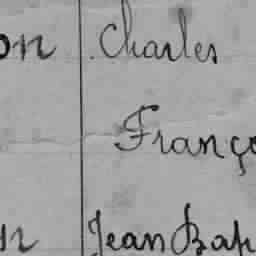 on Charles
Franço
n Jean Bap